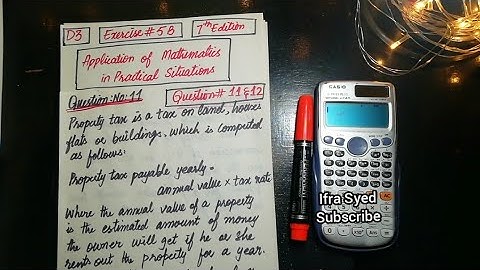 D3
Exercise # 5B
7th Edition
Application of Mathematics
in Practical Situations
Question No: 11
Question # 11 & 12
Property tax is a tax on land, houses
flats or buildings, which is computed
as follows:
Property tax payable yearly =
annual value x tax rate
Where the annual value of a property
is the estimated amount of money
the owner will get if he or she
rents out the property for a year.
CASIO
Ifra Syed
Subscribe